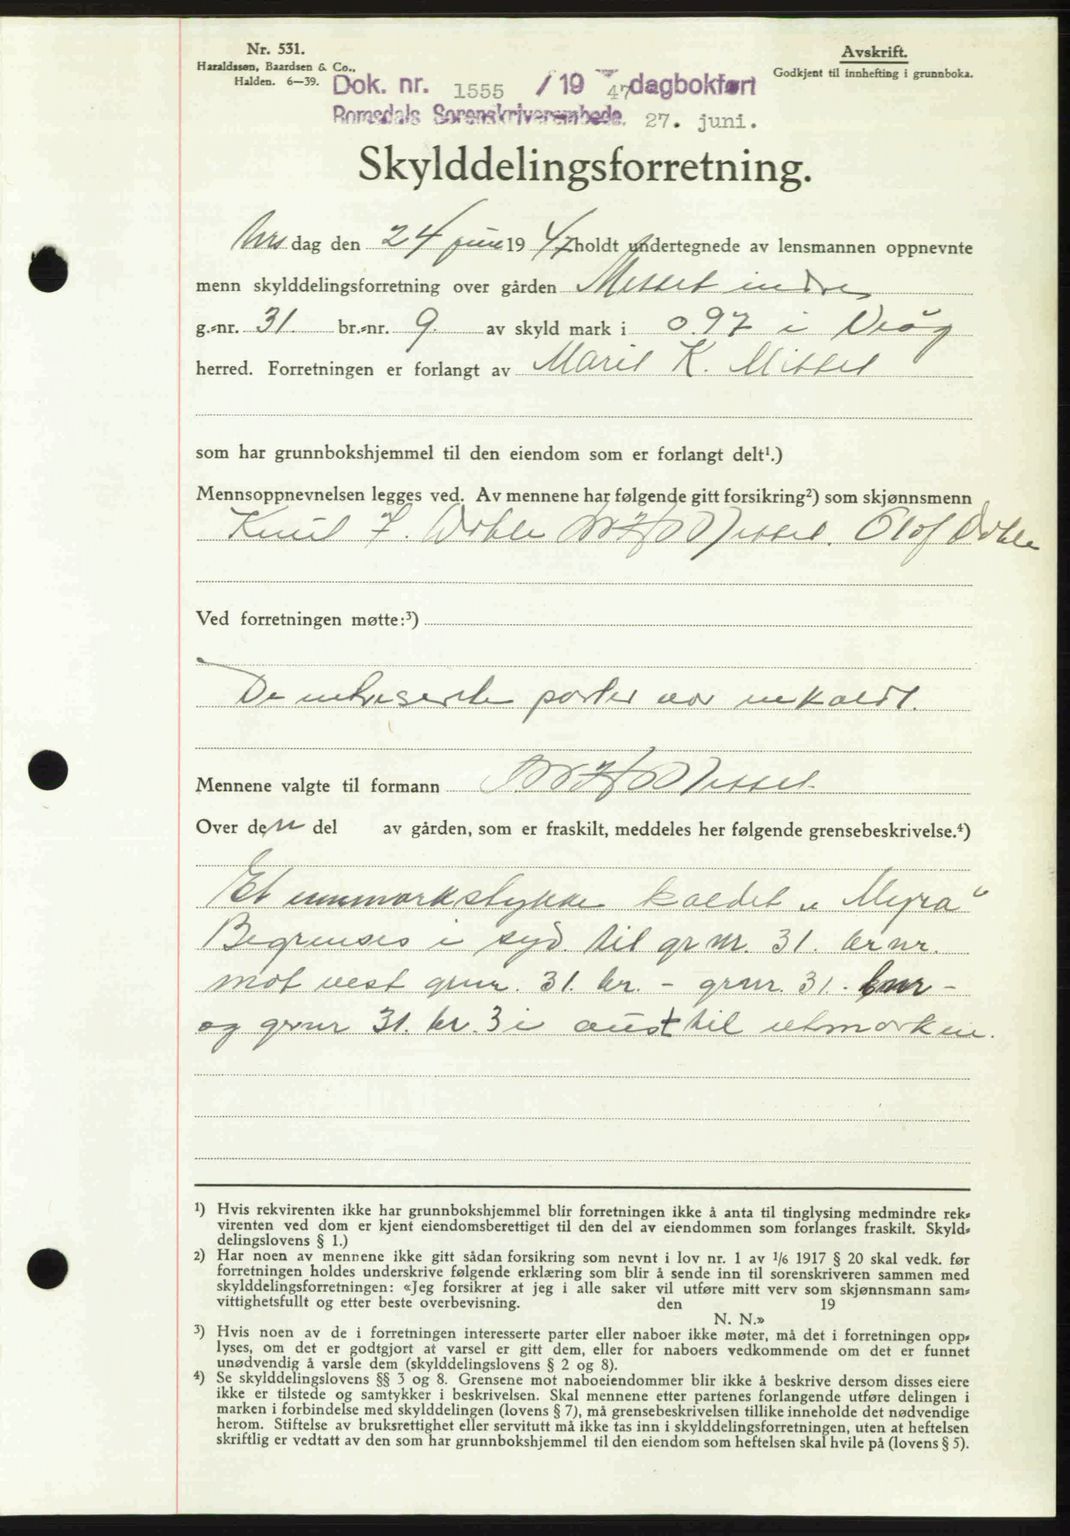 Nr. 531.
Haraldssen, Baardsen & Co.,
Halden. 6—39.
Avskrift.
Godkjent til innhefting i grunnboka.
Dok. nr. 1555 /19 47 dagbokført
Romsdals Sorenskriverembede. 27. juni.
Skylddelingsforretning.
dag den 24 juni 19 47 holdt undertegnede av lensmannen oppnevnte
menn skylddelingsforretning over gården Misset indre
g.-nr. 31. br.-nr. 9. av skyld mark i 0.97 i Vråg
herred. Forretningen er forlangt av Marit K. Misset
som har grunnbokshjemmel til den eiendom som er forlangt delt¹.)
Mennsoppnevnelsen legges ved. Av mennene har følgende gitt forsikring²) som skjønnsmenn
Knut Misset. Olof
Ved forretningen møtte:³)
De intereserte parter var inkaldt.
Mennene valgte til formann Misset
Over den del av gården, som er fraskilt, meddeles her følgende grensebeskrivelse.⁴)
Et innmarkstykke kaldet „Myra“
Begrenses i syd. til gr nr. 31. br nr.
mot vest grnr. 31. br. - grnr. 31. bnr -
og grnr 31. br. 3 i aust til utmarken.
¹) Hvis rekvirenten ikke har grunnbokshjemmel blir forretningen ikke å anta til tinglysing medmindre rek-
virenten ved dom er kjent eiendomsberettiget til den del av eiendommen som forlanges fraskilt. Skyld-
delingslovens § 1.)
²) Har noen av mennene ikke gitt sådan forsikring som nevnt i lov nr. 1 av ¹/₆ 1917 § 20 skal vedk. før
forretningen holdes underskrive følgende erklæring som blir å sende inn til sorenskriveren sammen med
skylddelingsforretningen: «Jeg forsikrer at jeg i alle saker vil utføre mitt verv som skjønnsmann sam-
vittighetsfullt og etter beste overbevisning. den 19
N. N.»
³) Hvis noen av de i forretningen interesserte parter eller naboer ikke møter, må det i forretningen opp-
lyses, om det er godtgjort at varsel er gitt dem, eller for naboers vedkommende om det er funnet
unødvendig å varsle dem (skylddelingslovens § 2 og 8).
⁴) Se skylddelingslovens §§ 3 og 8. Grensene mot naboeiendommer blir ikke å beskrive dersom disses eiere
ikke er tilstede og samtykker i beskrivelsen. Skal mennene etter partenes forlangende utføre delingen i
marken i forbindelse med skylddelingen (lovens § 7), må grensebeskrivelsen tillike inneholde det nødvendige
herom. Stiftelse av bruksrettighet eller servitutt må ikke tas inn i skylddelingsforretningen, uten at heftelsen
skriftlig er vedtatt av den som har grunnbokshjemmel til den eiendom som heftelsen skal hvile på (lovens § 5).